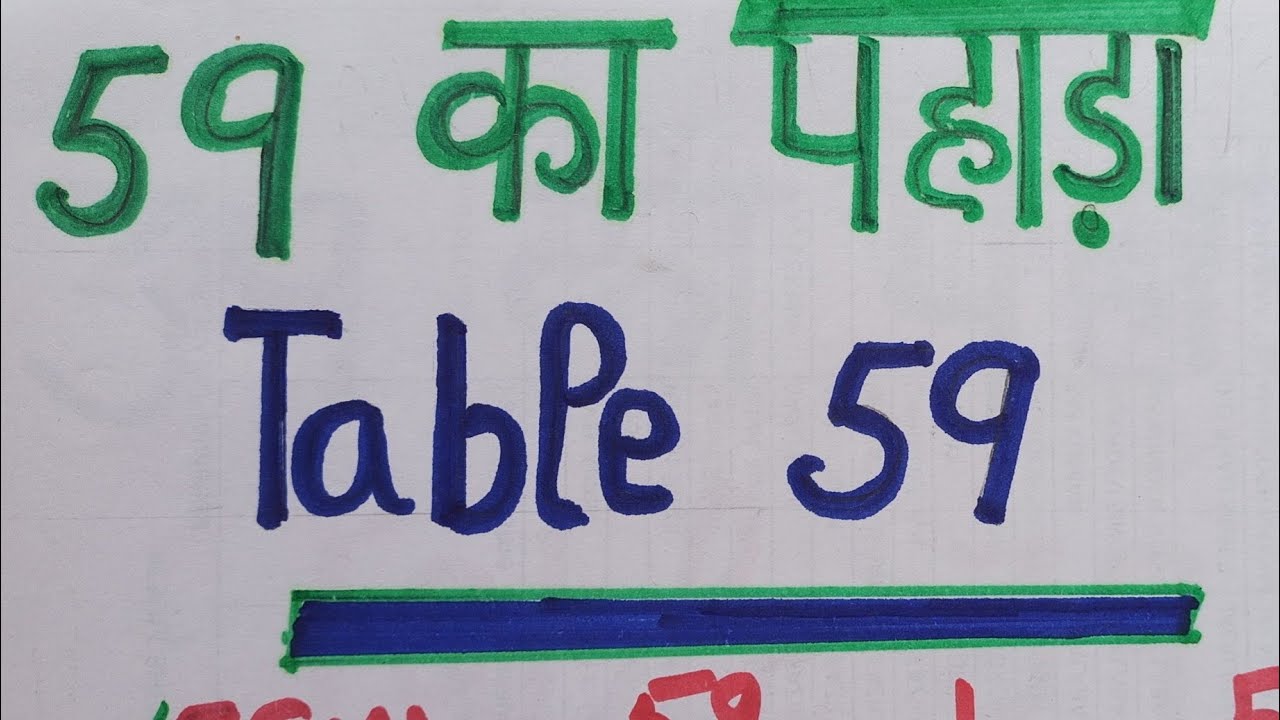 59 का पहाड़ा
Table 59